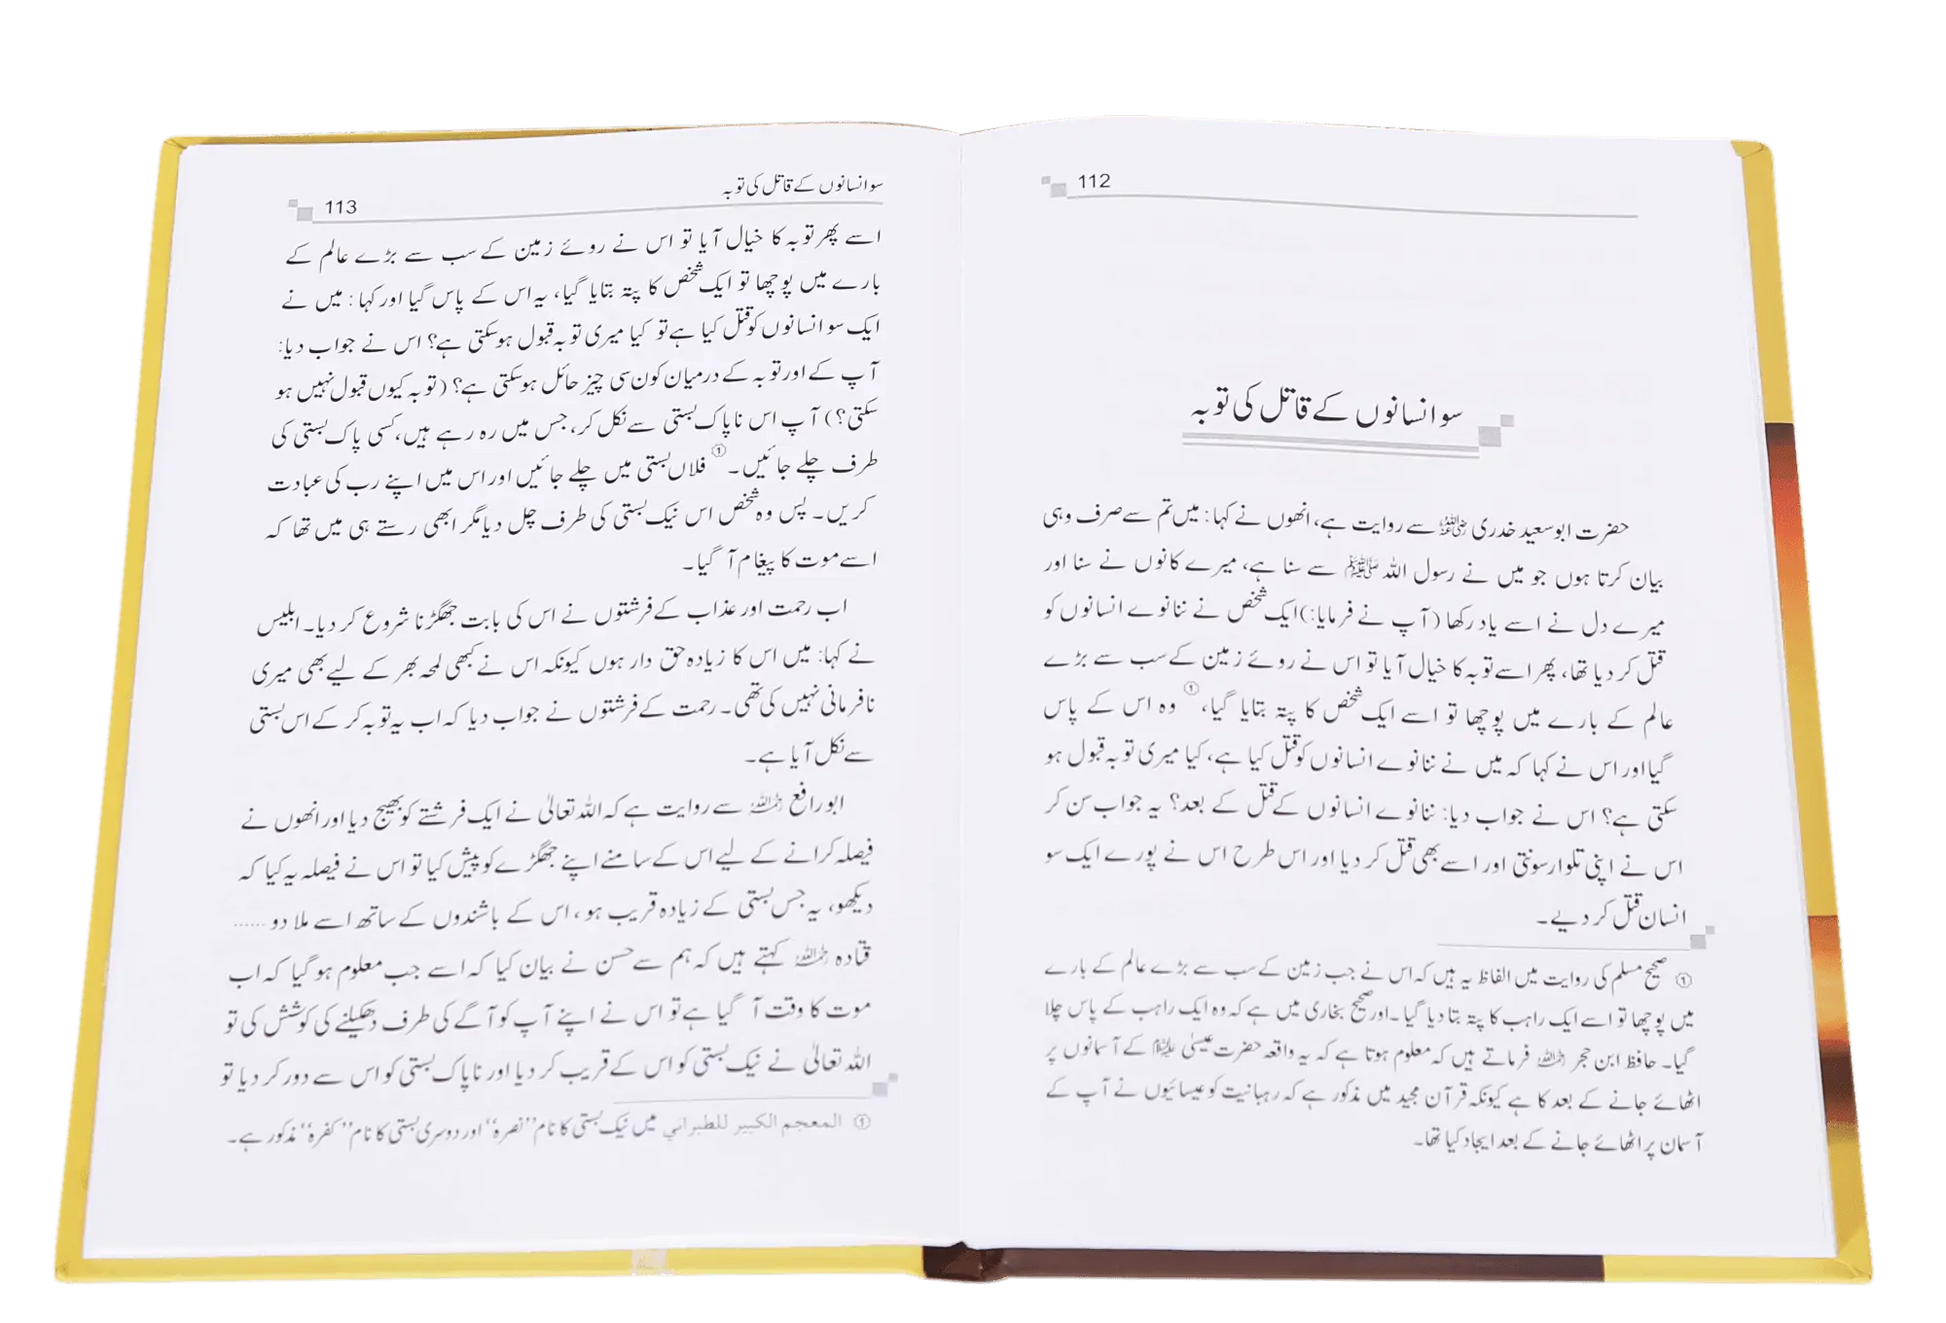 112
سو انسانوں کے قاتل کی توبہ
حضرت ابوسعید خدری رضی اللہ عنہ سے روایت ہے، انھوں نے کہا: میں تم سے صرف وہی
بیان کرتا ہوں جو میں نے رسول اللہ ﷺ سے سنا ہے، میرے کانوں نے سنا اور
میرے دل نے اسے یاد رکھا (آپ نے فرمایا:) ایک شخص نے ننانوے انسانوں کو
قتل کر دیا تھا، پھر اسے توبہ کا خیال آیا تو اس نے روئے زمین کے سب سے بڑے
عالم کے بارے میں پوچھا تو اسے ایک شخص کا پتہ بتایا گیا،① وہ اس کے پاس
گیا اور اس نے کہا کہ میں نے ننانوے انسانوں کو قتل کیا ہے، کیا میری توبہ قبول ہو
سکتی ہے؟ اس نے جواب دیا: ننانوے انسانوں کے قتل کے بعد؟ یہ جواب سن کر
اس نے اپنی تلوار سونتی اور اسے بھی قتل کر دیا اور اس طرح اس نے پورے ایک سو
انسان قتل کر دیے۔
① صحیح مسلم کی روایت میں الفاظ یہ ہیں کہ اس نے جب زمین کے سب سے بڑے عالم کے بارے
میں پوچھا تو اسے ایک راہب کا پتہ بتا دیا گیا۔ اور صحیح بخاری میں ہے کہ وہ ایک راہب کے پاس چلا
گیا۔ حافظ ابن حجر رحمہ اللہ فرماتے ہیں کہ معلوم ہوتا ہے کہ یہ واقعہ حضرت عیسیٰ علیہ السلام کے آسمانوں پر
اٹھائے جانے کے بعد کا ہے کیونکہ قرآن مجید میں مذکور ہے کہ رہبانیت کو عیسائیوں نے آپ کے
آسمان پر اٹھائے جانے کے بعد ایجاد کیا تھا۔
سو انسانوں کے قاتل کی توبہ 113
اسے پھر توبہ کا خیال آیا تو اس نے روئے زمین کے سب سے بڑے عالم کے
بارے میں پوچھا تو ایک شخص کا پتہ بتایا گیا، یہ اس کے پاس گیا اور کہا: میں نے
ایک سو انسانوں کو قتل کیا ہے تو کیا میری توبہ قبول ہو سکتی ہے؟ اس نے جواب دیا:
آپ کے اور توبہ کے درمیان کون سی چیز حائل ہو سکتی ہے؟ (توبہ کیوں قبول نہیں ہو
سکتی؟) آپ اس ناپاک بستی سے نکل کر، جس میں رہ رہے ہیں، کسی پاک بستی کی
طرف چلے جائیں۔① فلاں بستی میں چلے جائیں اور اس میں اپنے رب کی عبادت
کریں۔ پس وہ شخص اس نیک بستی کی طرف چل دیا مگر ابھی رستے ہی میں تھا کہ
اسے موت کا پیغام آ گیا۔
اب رحمت اور عذاب کے فرشتوں نے اس کی بابت جھگڑنا شروع کر دیا۔ ابلیس
نے کہا: میں اس کا زیادہ حق دار ہوں کیونکہ اس نے کبھی لمحہ بھر کے لیے بھی میری
نافرمانی نہیں کی تھی۔ رحمت کے فرشتوں نے جواب دیا کہ اب یہ توبہ کر کے اس بستی
سے نکل آیا ہے۔
ابورافع رحمہ اللہ سے روایت ہے کہ اللہ تعالیٰ نے ایک فرشتے کو بھیج دیا اور انھوں نے
فیصلہ کرانے کے لیے اس کے سامنے اپنے جھگڑے کو پیش کیا تو اس نے فیصلہ یہ کیا کہ
دیکھو، یہ جس بستی کے زیادہ قریب ہو، اس کے باشندوں کے ساتھ اسے ملا دو ......
قتادہ رحمہ اللہ کہتے ہیں کہ ہم سے حسن نے بیان کیا کہ اسے جب معلوم ہو گیا کہ اب
موت کا وقت آ گیا ہے تو اس نے اپنے آپ کو آگے کی طرف دھکیلنے کی کوشش کی تو
اللہ تعالیٰ نے نیک بستی کو اس کے قریب کر دیا اور ناپاک بستی کو اس سے دور کر دیا تو
① المعجم الكبير للطبراني میں نیک بستی کا نام ”نصرہ“ اور دوسری بستی کا نام ”کفرہ“ مذکور ہے۔